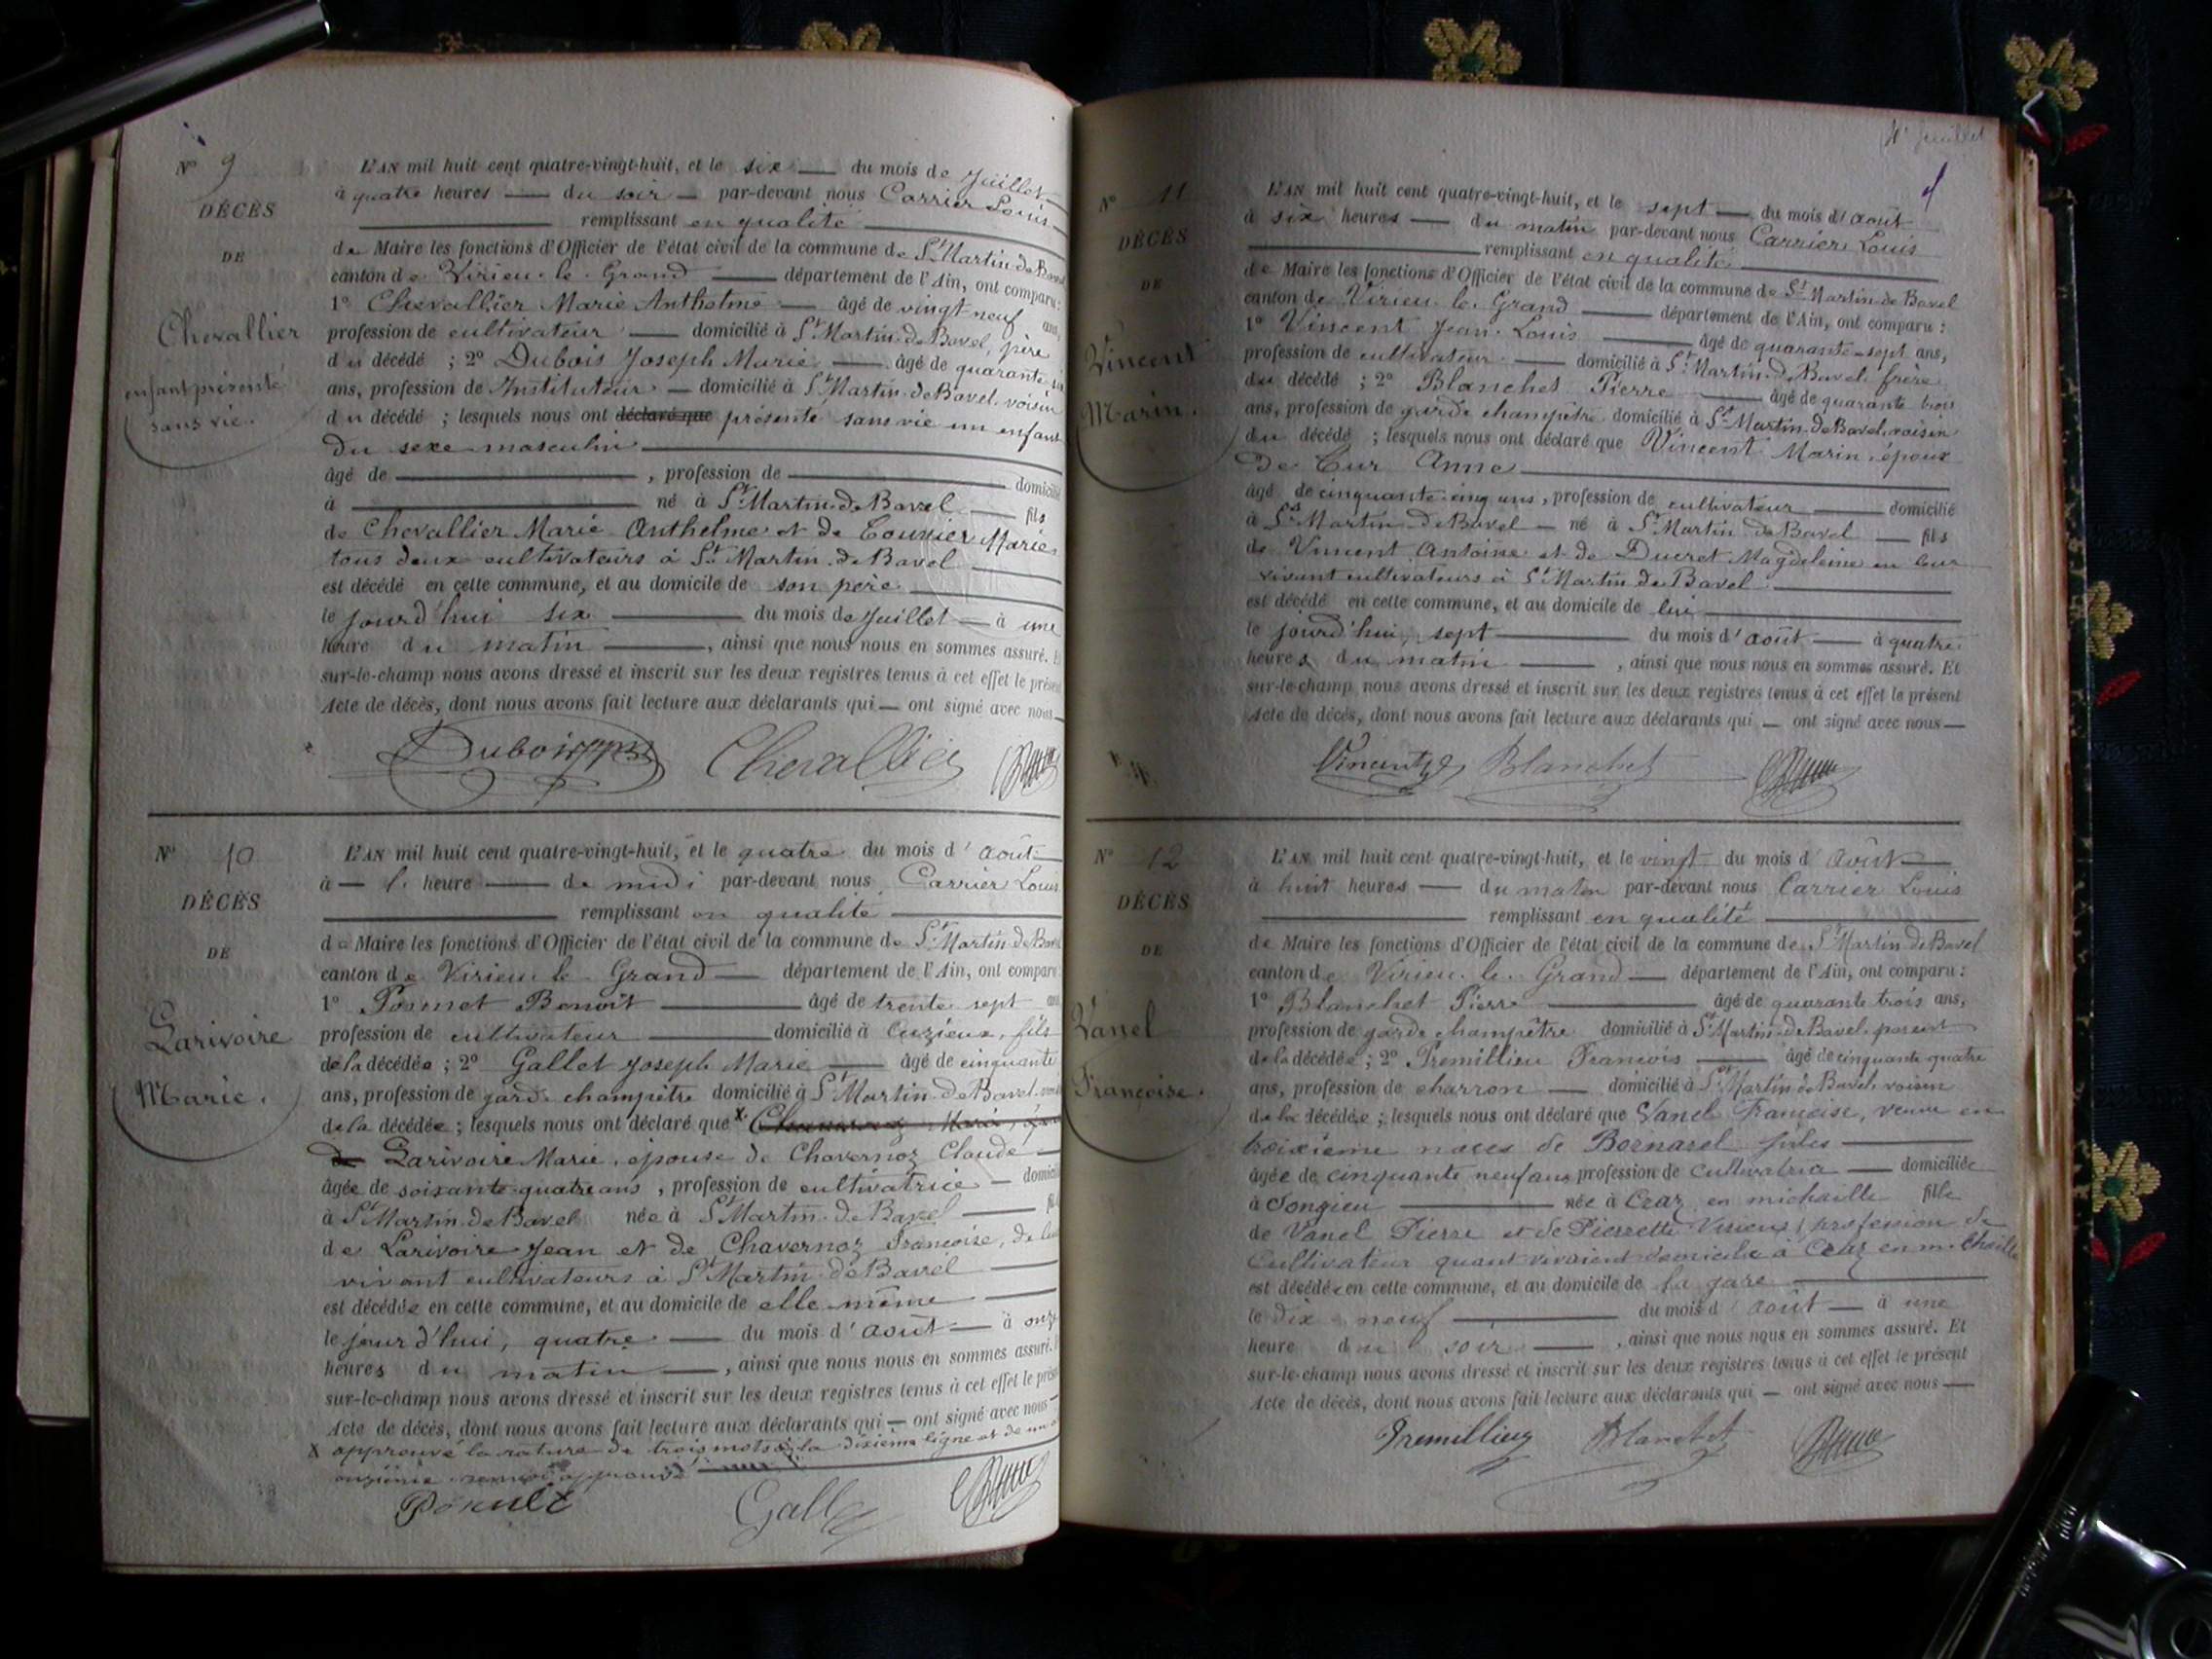 N° 9
DÉCÈS
DE
Chevallier
enfant présenté
sans vie.
L'AN mil huit cent quatre-vingt-huit, et le six du mois de Juillet
à quatre heures du soir par-devant nous Carrier Louis
remplissant en qualité
de Maire les fonctions d'Officier de l'état civil de la commune de St Martin de Bavel
canton de Virieu le Grand département de l'Ain, ont comparu :
1° Chevallier Marie Anthelme âgé de vingt neuf ans,
profession de cultivateur domicilié à St Martin de Bavel, père
du décédé ; 2° Dubois Joseph Marie âgé de quarante
ans, profession de Instituteur domicilié à St Martin de Bavel, voisin
du décédé ; lesquels nous ont déclaré que présenté sans vie un enfant
du sexe masculin
âgé de , profession de domicilié
à né à St Martin de Bavel fils
de Chevallier Marie Anthelme et de Marie
tous deux cultivateurs à St Martin de Bavel
est décédé en cette commune, et au domicile de son père
le jourd'hui six du mois de Juillet à une
heure du matin , ainsi que nous nous en sommes assuré. Et
sur-le-champ nous avons dressé et inscrit sur les deux registres tenus à cet effet le présent
Acte de décès, dont nous avons fait lecture aux déclarants qui ont signé avec nous
Dubois Chevallier
N° 10
DÉCÈS
DE
Larivoire
Marie.
L'AN mil huit cent quatre-vingt-huit, et le quatre du mois d'août
à l' heure de midi par-devant nous Carrier Louis
remplissant en qualité
de Maire les fonctions d'Officier de l'état civil de la commune de St Martin de Bavel
canton de Virieu le Grand département de l'Ain, ont comparu
1° Benoît âgé de trente sept ans
profession de cultivateur domicilié à Cuzieux, fils
de la décédée ; 2° Gallet Joseph Marie âgé de cinquante
ans, profession de garde champêtre domicilié à St Martin de Bavel,
de la décédée ; lesquels nous ont déclaré que x
de Larivoire Marie, épouse de Chavernoz Claude
âgée de soixante quatre ans , profession de cultivatrice domiciliée
à St Martin de Bavel née à St Martin de Bavel
de Larivoire Jean et de Chavernoz Françoise, de leur
vivant cultivateurs à St Martin de Bavel
est décédée en cette commune, et au domicile de elle même
le jourd'hui, quatre du mois d'août à onze
heures du matin , ainsi que nous nous en sommes assuré.
sur-le-champ nous avons dressé et inscrit sur les deux registres tenus à cet effet le présent
Acte de décès, dont nous avons fait lecture aux déclarants qui ont signé avec nous
x approuvé la rature de trois mots à la dixième ligne et de un
onzième renvoi approuvé
Gallet
4e feuillet
N° 11
DÉCÈS
DE
Vincent
Marin.
L'AN mil huit cent quatre-vingt-huit, et le sept du mois d'août
à six heures du matin par-devant nous Carrier Louis
remplissant en qualité
de Maire les fonctions d'Officier de l'état civil de la commune de St Martin de Bavel
canton de Virieu le Grand département de l'Ain, ont comparu :
1° Vincent Jean Louis âgé de quarante-sept ans,
profession de cultivateur domicilié à St Martin de Bavel frère
du décédé ; 2° Blanchet Pierre âgé de quarante trois
ans, profession de garde champêtre domicilié à St Martin de Bavel, voisin
du décédé ; lesquels nous ont déclaré que Vincent Marin, époux
de Cur Anne
âgé de cinquante cinq ans, profession de cultivateur domicilié
à St Martin de Bavel né à St Martin de Bavel fils
de Vincent Antoine et de Ducret Magdeleine en leur
vivant cultivateurs à St Martin de Bavel
est décédé en cette commune, et au domicile de lui
le jourd'hui, sept du mois d'août à quatre
heures du matin , ainsi que nous nous en sommes assuré. Et
sur-le-champ nous avons dressé et inscrit sur les deux registres tenus à cet effet le présent
Acte de décès, dont nous avons fait lecture aux déclarants qui ont signé avec nous
Vincent Blanchet
N° 12
DÉCÈS
DE
Vanel
Françoise.
L'AN mil huit cent quatre-vingt-huit, et le vingt du mois d'Août
à huit heures du matin par-devant nous Carrier Louis
remplissant en qualité
de Maire les fonctions d'Officier de l'état civil de la commune de St Martin de Bavel
canton de Virieu le Grand département de l'Ain, ont comparu :
1° Blanchet Pierre âgé de quarante trois ans,
profession de garde champêtre domicilié à St Martin de Bavel, parent
de la décédée ; 2° Premillieu François âgé de cinquante quatre
ans, profession de charron domicilié à St Martin de Bavel, voisin
de la décédée ; lesquels nous ont déclaré que Vanel Françoise, veuve en
troixième noces de Bornarel Jules
âgée de cinquante neuf ans profession de cultivatrice domiciliée
à Songieu née à Craz en michaille fille
de Vanel Pierre et de Pierrette profession de
Cultivateur quand vivaient domicile à Craz en michaille
est décédée en cette commune, et au domicile de la gare
le dix neuf du mois d'août à une
heure du soir , ainsi que nous nous en sommes assuré. Et
sur-le-champ nous avons dressé et inscrit sur les deux registres tenus à cet effet le présent
Acte de décès, dont nous avons fait lecture aux déclarants qui ont signé avec nous
Premillieu Blanchet